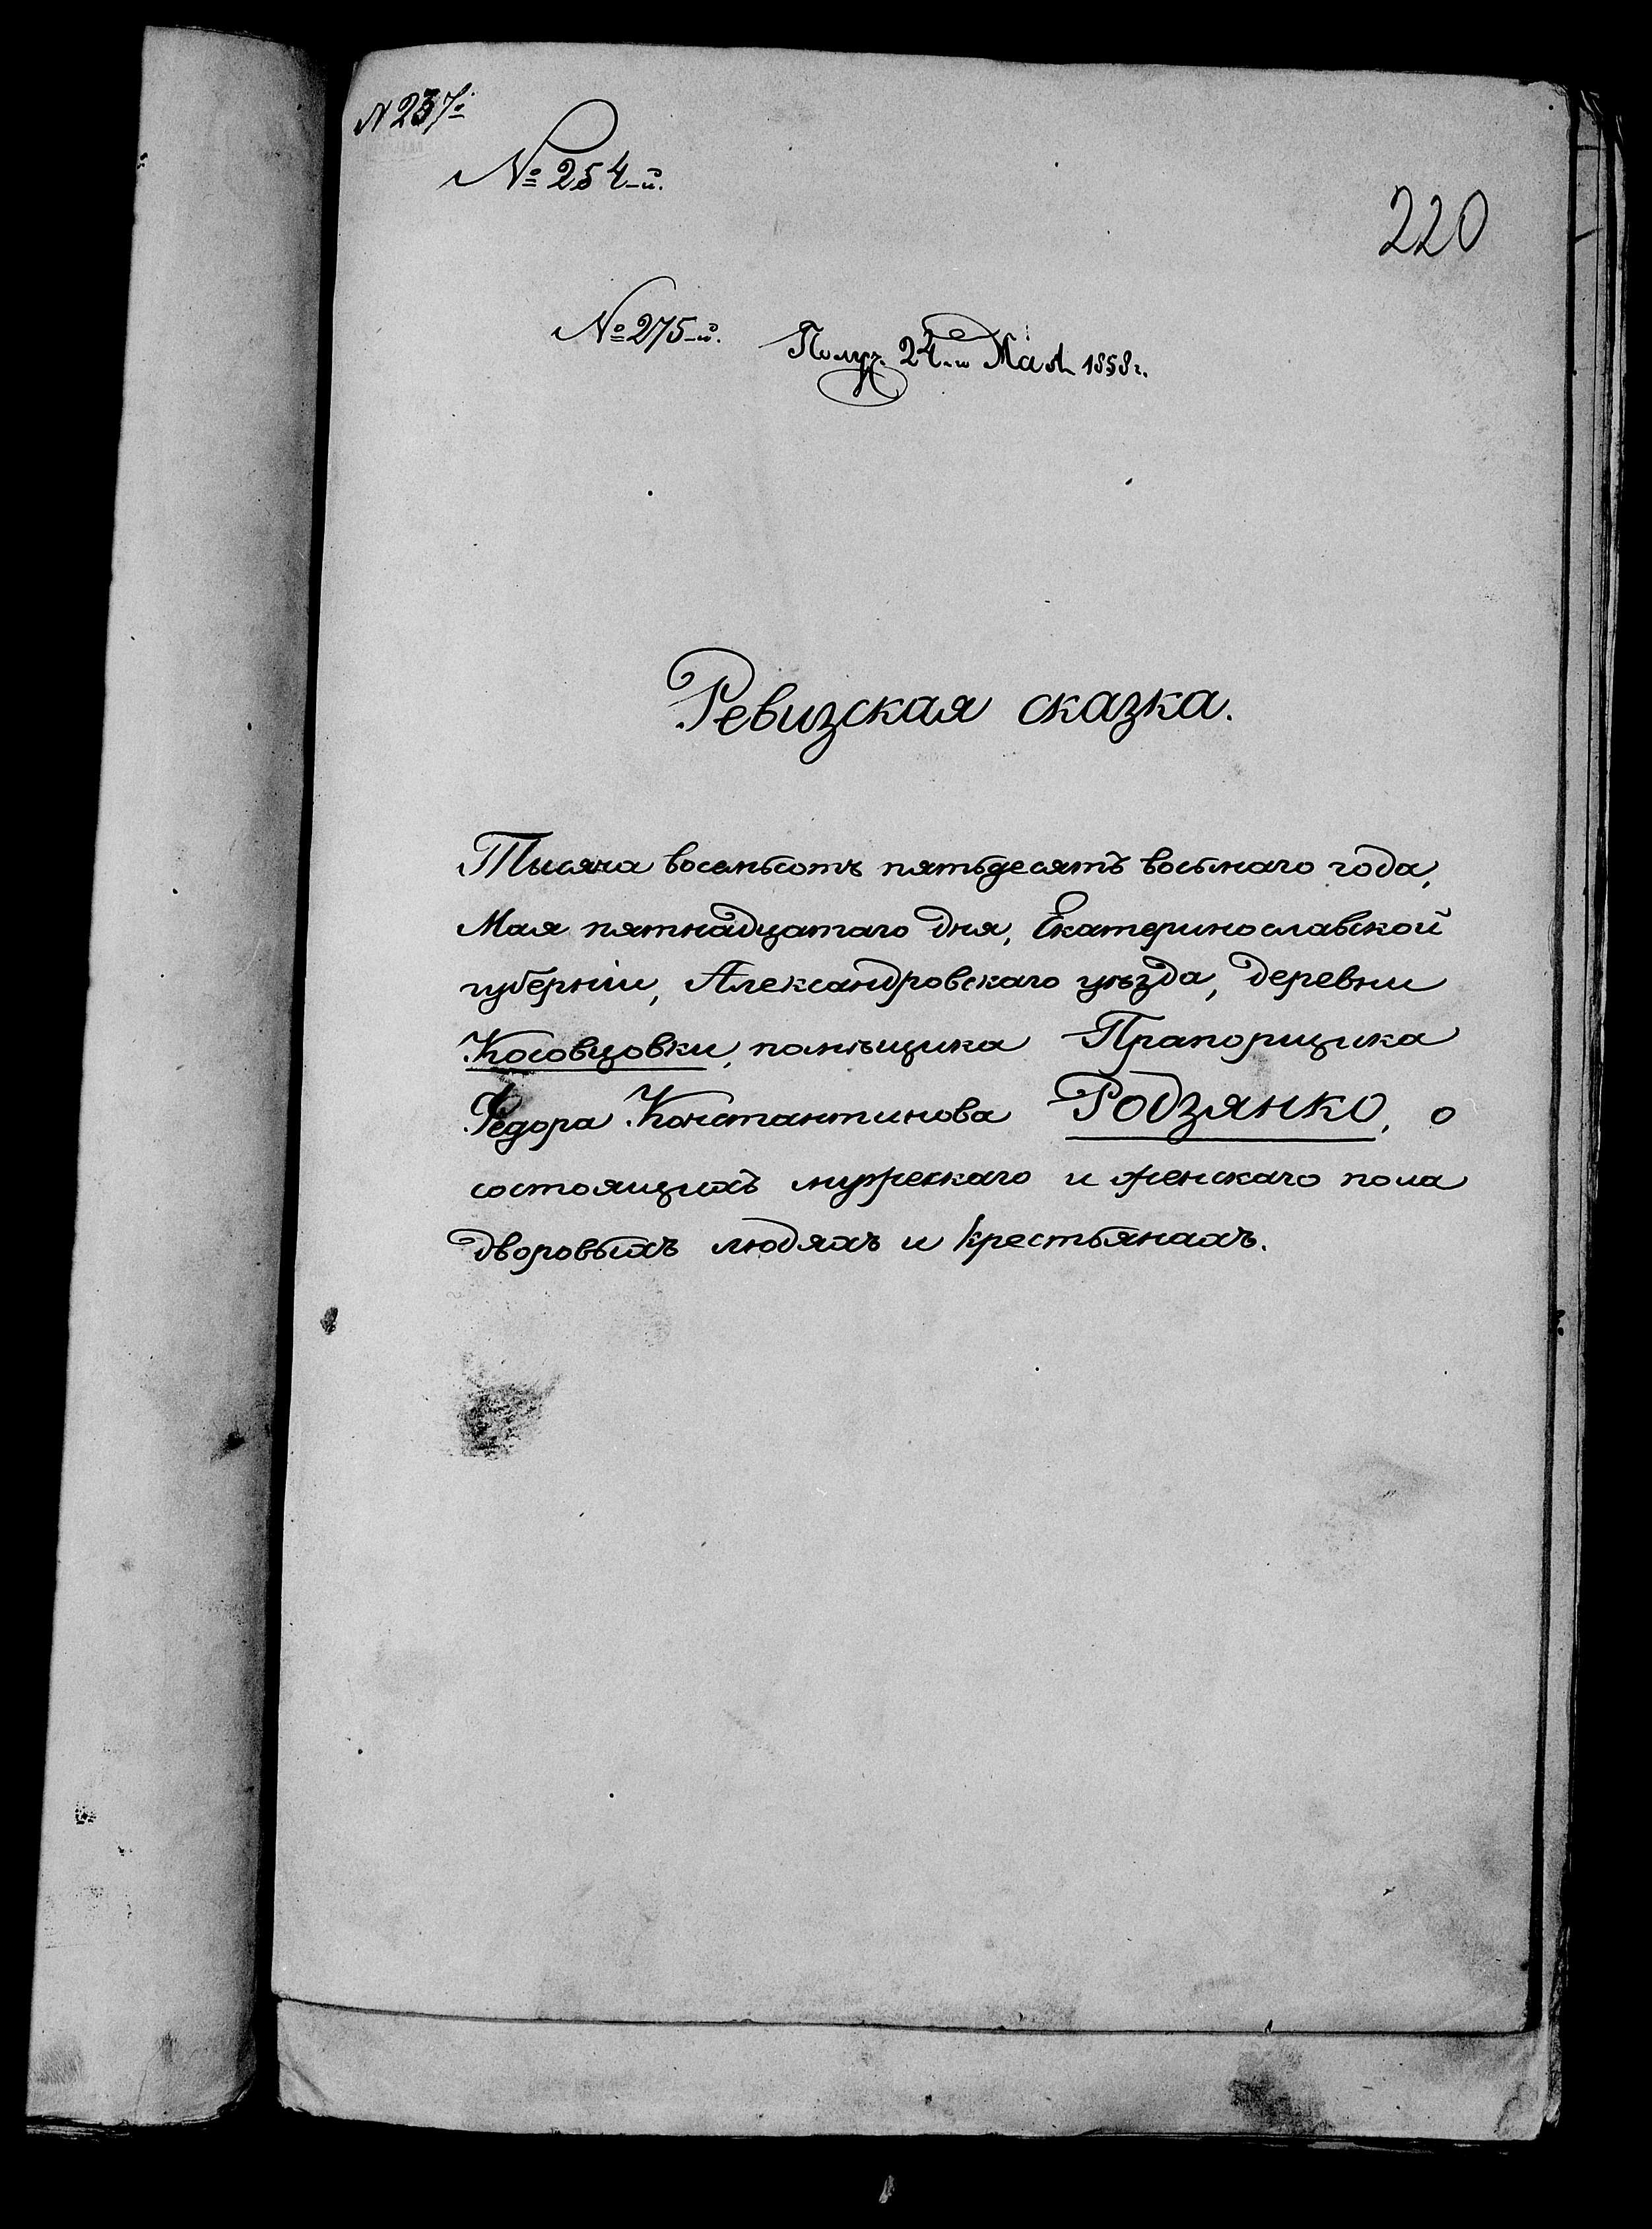 N 237.
№ 254-й.
220
№ 275-й. Получ. 24-го Мая 1858 г.
Ревизская сказка.
Тысяча восемьсотъ пятьдесятъ восьмаго года,
Мая пятнадцатаго дня, Екатеринославской
губерніи, Александровскаго уѣзда, деревни
Косовцовки, помѣщика Прапорщика
Федора Константинова Родзянко, о
состоящихъ мужескаго и женскаго пола
дворовыхъ людяхъ и крестьянахъ.